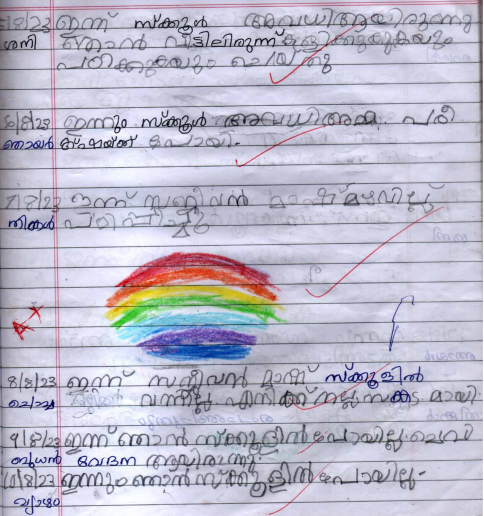 5/8/23 ഇന്ന് സ്ക്കൂൾ അവധിആയിരുന്നു
ശനി ഞാൻ വീട്ടിലിരുന്ന് കളിക്കുയുകയും
പഠിക്കുകയും ചെയ്തു
6/8/23 ഇന്നും സ്ക്കൂൾ അവധി
ഞായർ പോയി.
7/8/23 ഇന്ന് സജീവൻ മാഷ് മഴവില്ല്
തിങ്കൾ പഠിപ്പിച്ചു
A+
8/8/23 ഇന്ന് സജീവൻ മാഷ് സ്ക്കൂളിൽ
ചൊവ്വ വന്നില്ല എനിക്ക് നല്ല സങ്കടമായി
9/8/23 ഇന്ന് ഞാൻ സ്ക്കൂളിൽ പോയില്ല ചെവി
ബുധൻ വേദന ആയിരുന്നു.
10/8/23 ഇന്നും ഞാൻ സ്ക്കൂളിൽ പോയില്ല.
വ്യാഴം